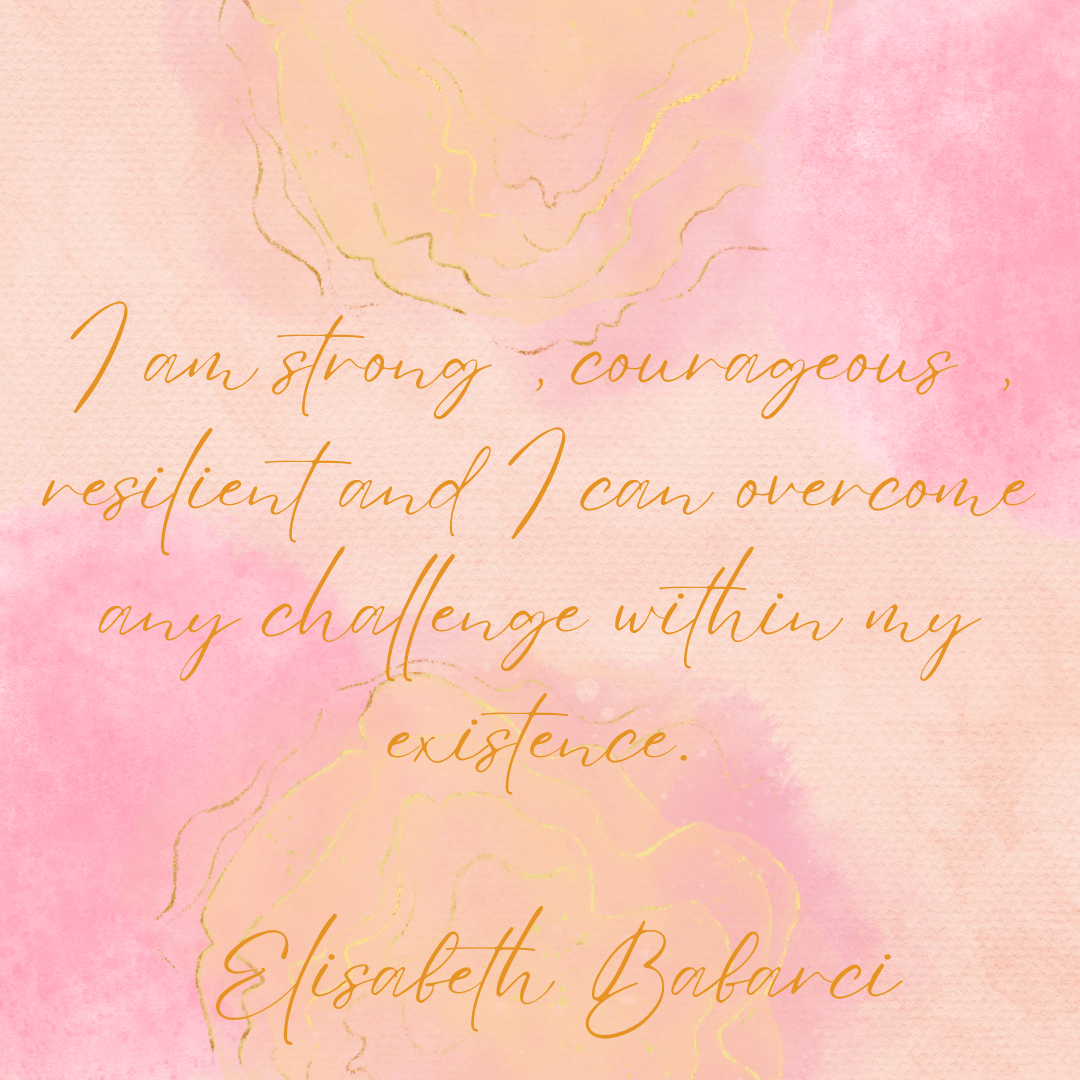 I am strong , courageous ,
resilient and I can overcome
any challenge within my
existence.
Elisabeth Babarci